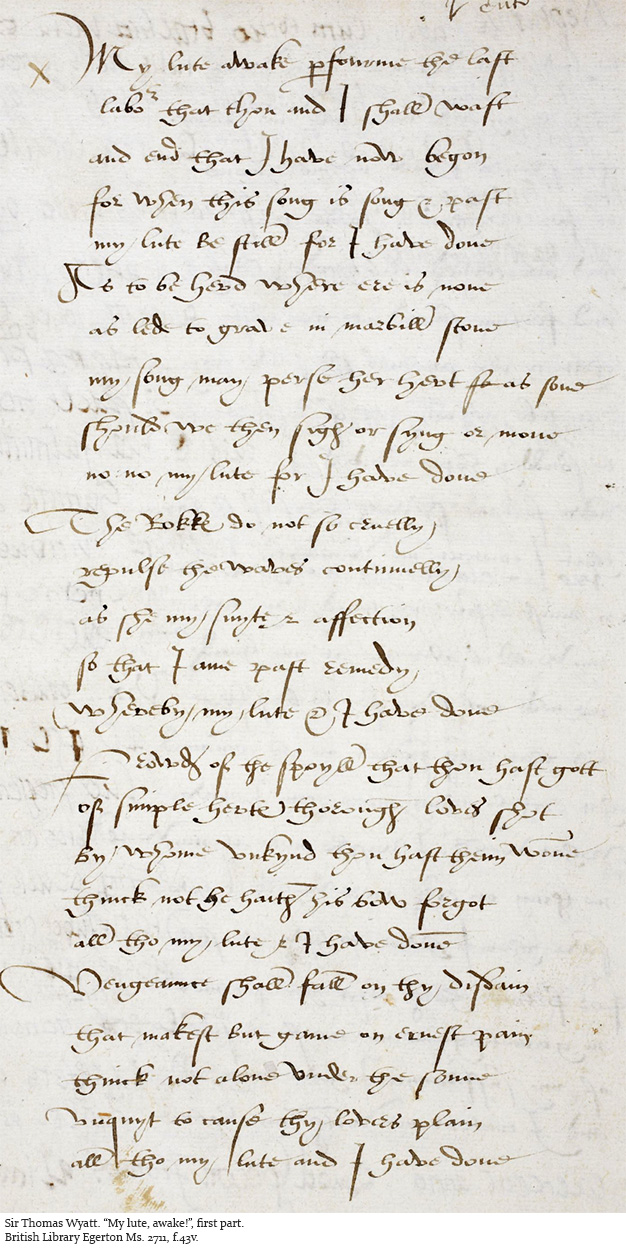 My lute awake pfourme the last
labor that thou and I shall wast
and end that I have now begon
for when this song is song & past
my lute be still for I have done
As to be herd where ere is none
as lede to grave in marbill stone
my song may perse her hert as sone
should we then sigh or syng or mone
no no my lute for I have done
The Rokk do not so cruelly
repulse the waves continuelly
as she my suyte & affection
so that I ame past remedy
whereby my lute & I have done
Prowd of the spoyll that thou hast gott
of simple hertes thorough loves shot
by whome unkynd thou hast them wone
thinck not he haith his bow forgot
all tho my lute & I have done
Vengeaunce shall fall on thy disdain
that makest but game on ernest pain
thinck not alone under the sonne
unquyt to cause thy lovers plain
all tho my lute and I have done
Sir Thomas Wyatt. “My lute, awake!”, first part.
British Library Egerton Ms. 2711, f.43v.